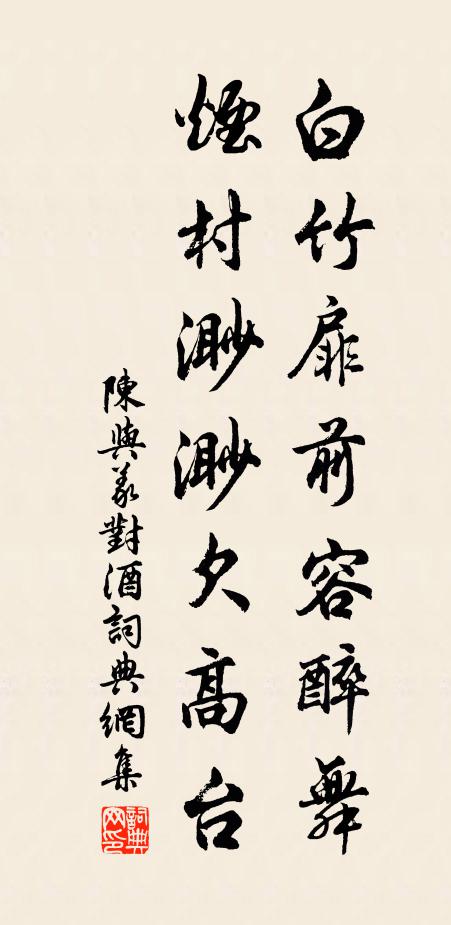 白竹扉前容醉舞
煙村渺渺欠高台
陳與義對酒詞典網集
詞典網印